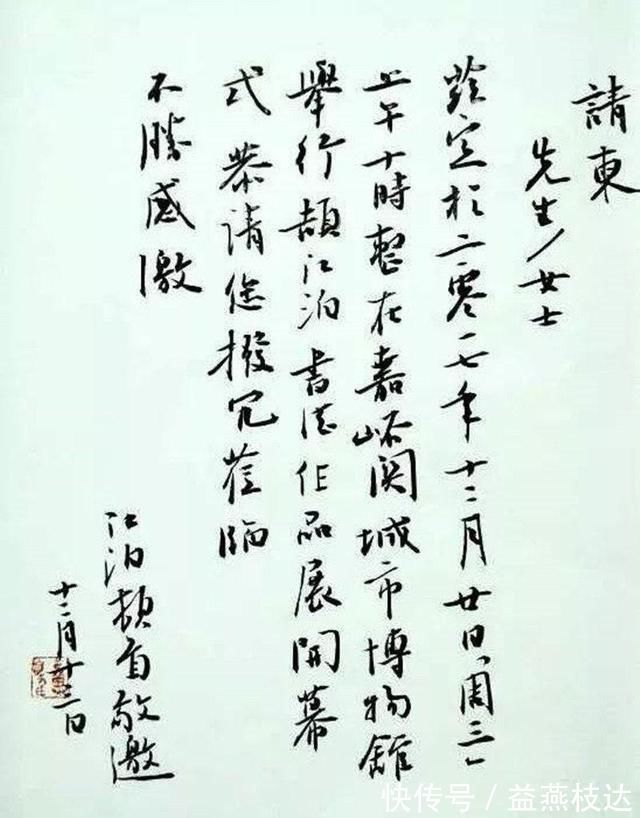 請東
先生/女士
謹定於二零一七年十二月廿日(周三)
上午十時整在嘉峪関城市博物館
舉行頡江泊書法作品展開幕
式恭請您撥冗蒞臨
不勝感激
江泊頓首敬邀
十二月十三日
快传号 / 益燕枝达